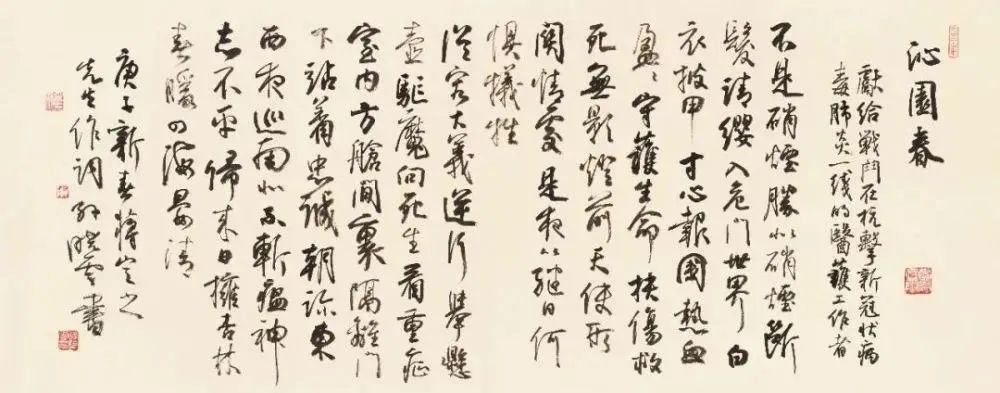 沁園春
獻給戰鬥在抗擊新冠状病
毒肺炎一线的醫護工作者
不是硝煙勝似硝煙斷
髮請纓入危門世界白
衣披甲寸心報國熱血
盈〻守護生命扶傷救
死無影燈前天使形
關情處是夜以繼日何
懼犧牲
從容大義逆行舉懸
壺驅魔向死生看重症
室内方艙間裏隔離門
下站着忠誠朝診東
西夜巡南北不斬瘟神
志不平歸来日擁杏林
春暖四海晏清
庚子新春蔣定之
先生作詞孫曉雲書